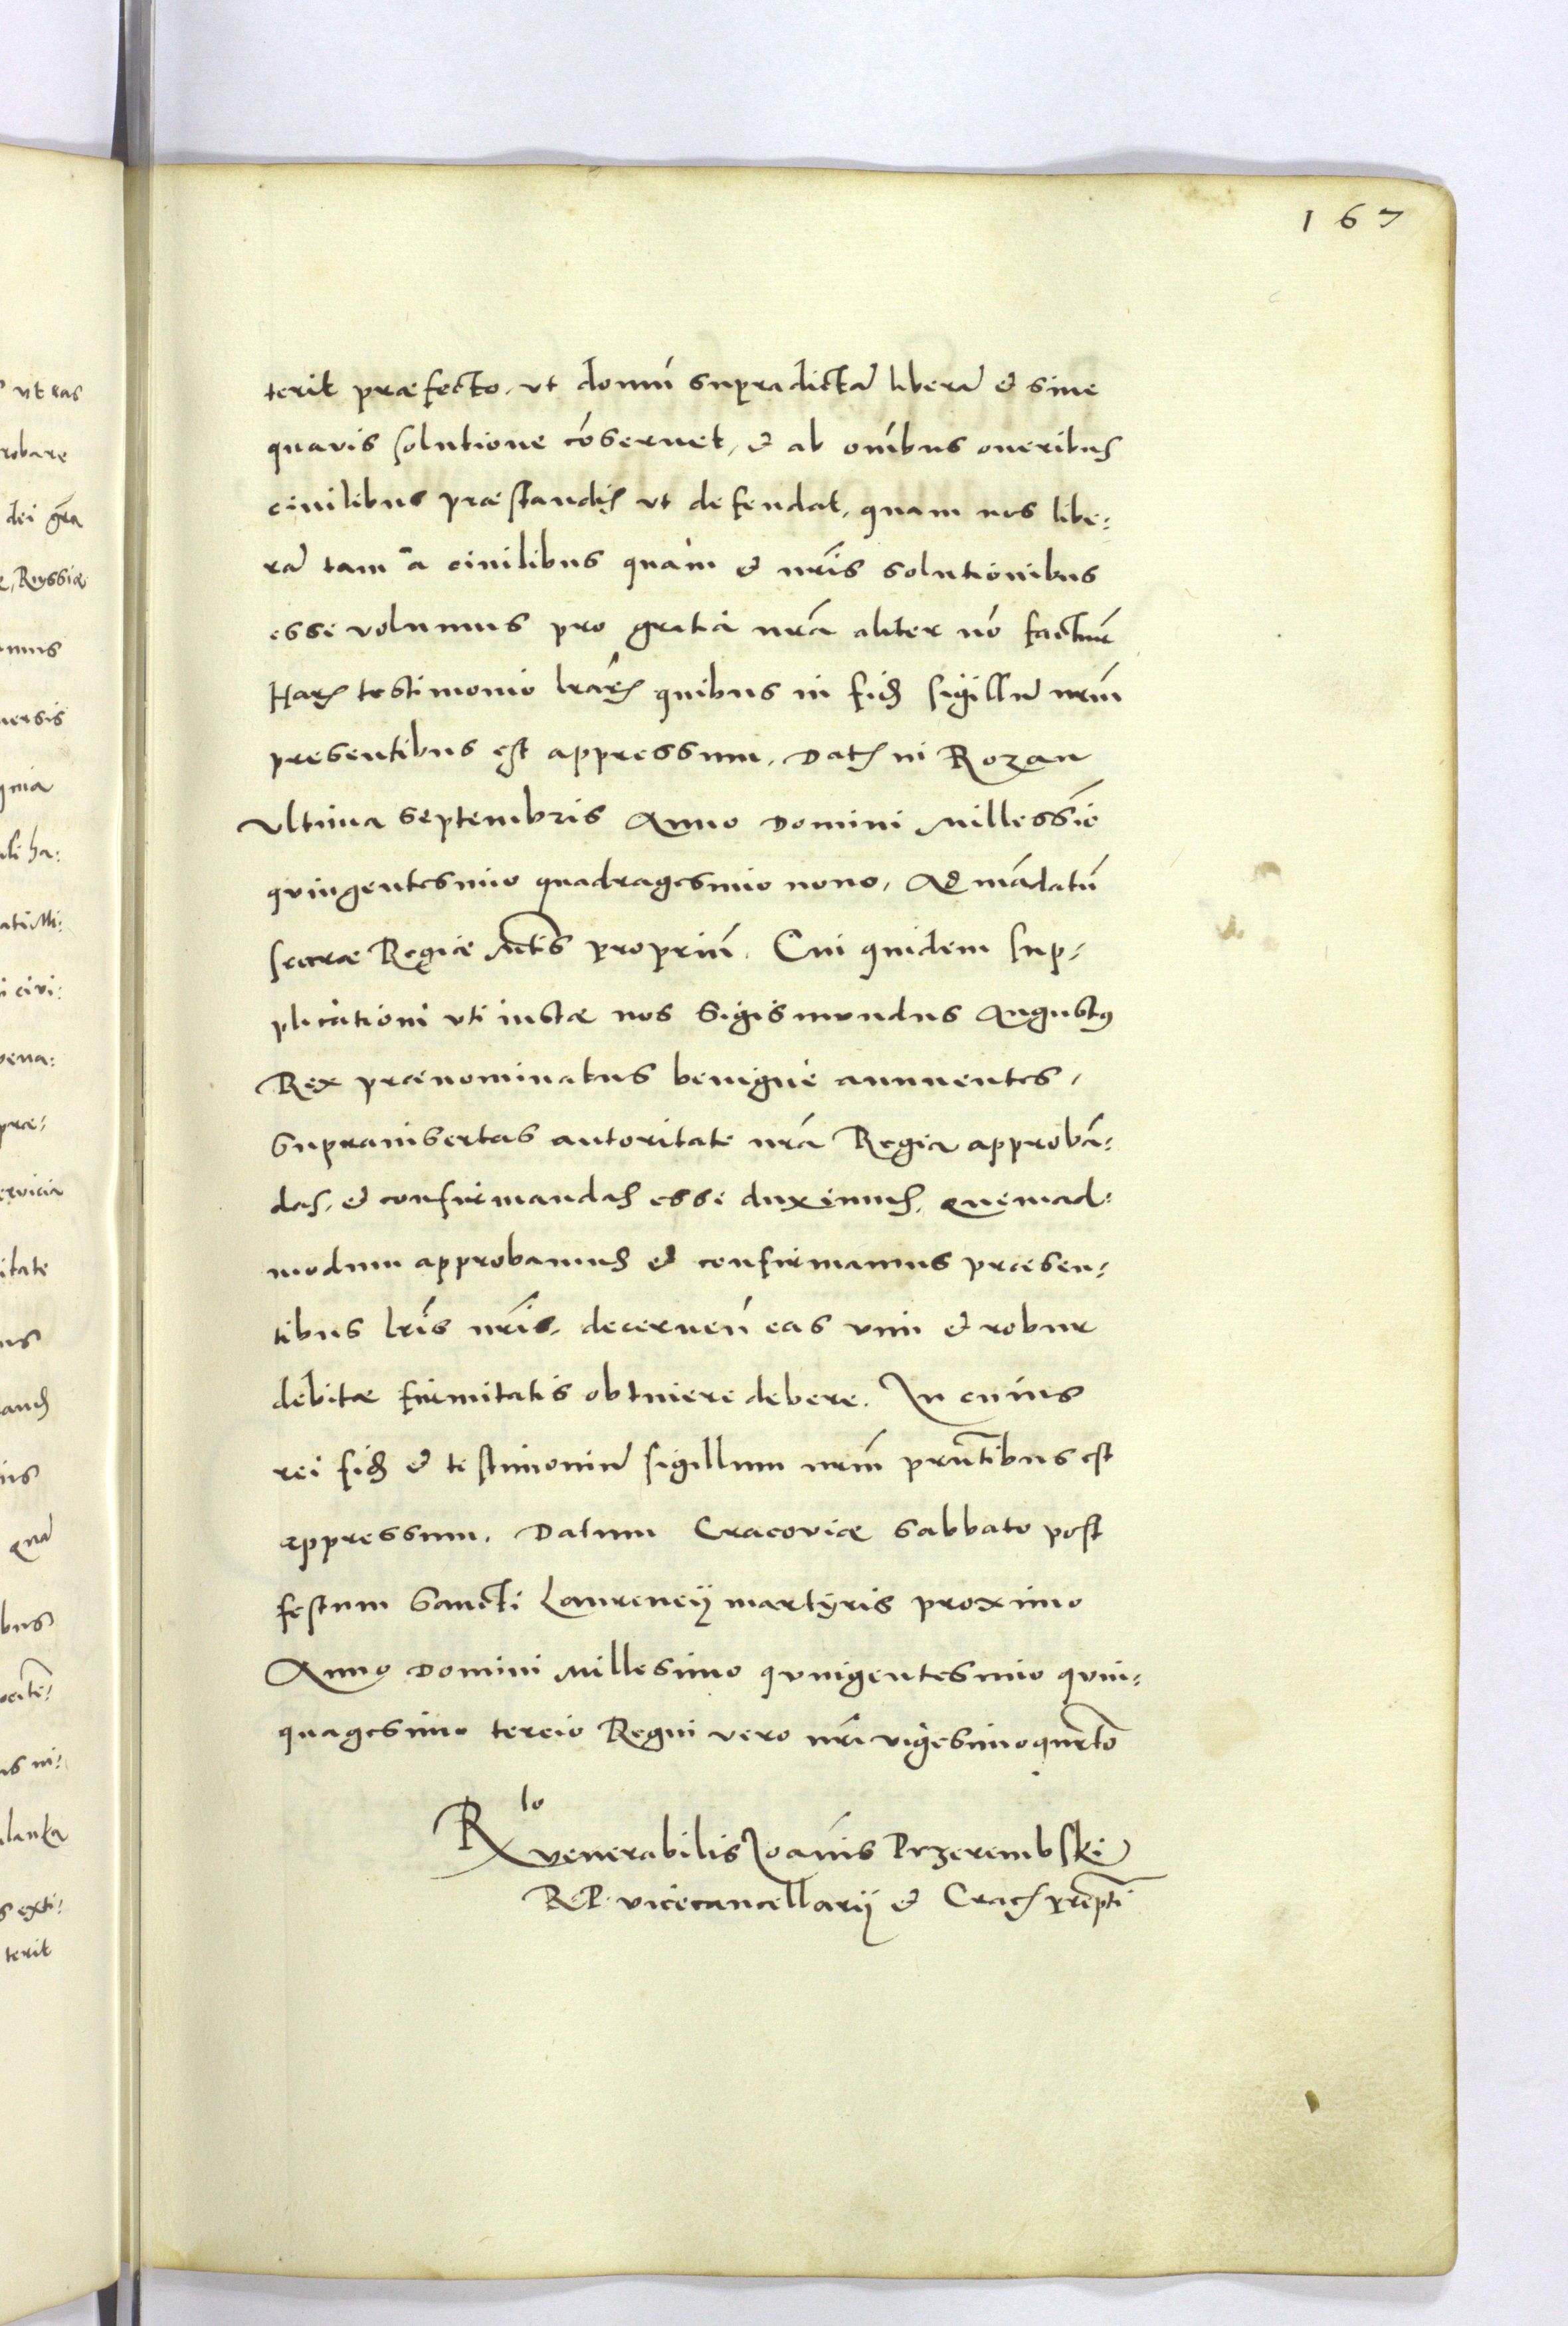 167
terit præfecto, vt domū supradictā liberā et sine
quavis solutione cōservet, et ab oībus oneribus
civilibus præstandis vt defendat, quam nos libe:
rā tam a civilibus quam et nr̄is solutionibus
esse volumus pro gratia nr̄a aliter nō factur
Harꝝ testimonio lrarꝝ quibus in fidē sigillū nr̄m
presentibus est appressum. Dat in Rozan
Vltima Septembris Anno Domini Millessīo
quingentesimo quadragesimo nono. Ad mādatū
sacræ Regiæ Mtis̄ propriū. Cui quidem sup:
plicationi uti iustæ nos Sigismundus Augustus
Rex prænominatus benigne annuentes,
suprainsertas autoritate nr̄a Regia approbā:
das, et confirmandas esse duximus, quemad:
modum approbamus et confirmamus præsen:
tibus lr̄is nr̄is, decernen̄ eas vim et robur
debitæ firmitatis obtinere debere. In cuius
rei fidē et testimoniū sigillum nr̄m prn̄tibus est
appressum. Datum Cracoviæ sabbato post
festum Sancti Laurencij martyris proximo
Anno Domini Millesimo quingentesimo quin:
quagesimo tercio Regni vero nr̄i vigesimoquarto
Rlo
venerabilis Joānis Przerembski
R.P. vicecancellarij et Crac prepti
vt eas
robare
dei gr̄a
Ryssiæ
mus
versis
ha:
i civi:
præ:
ervicia
itate
ius
bus
us in:
s exti:
terit